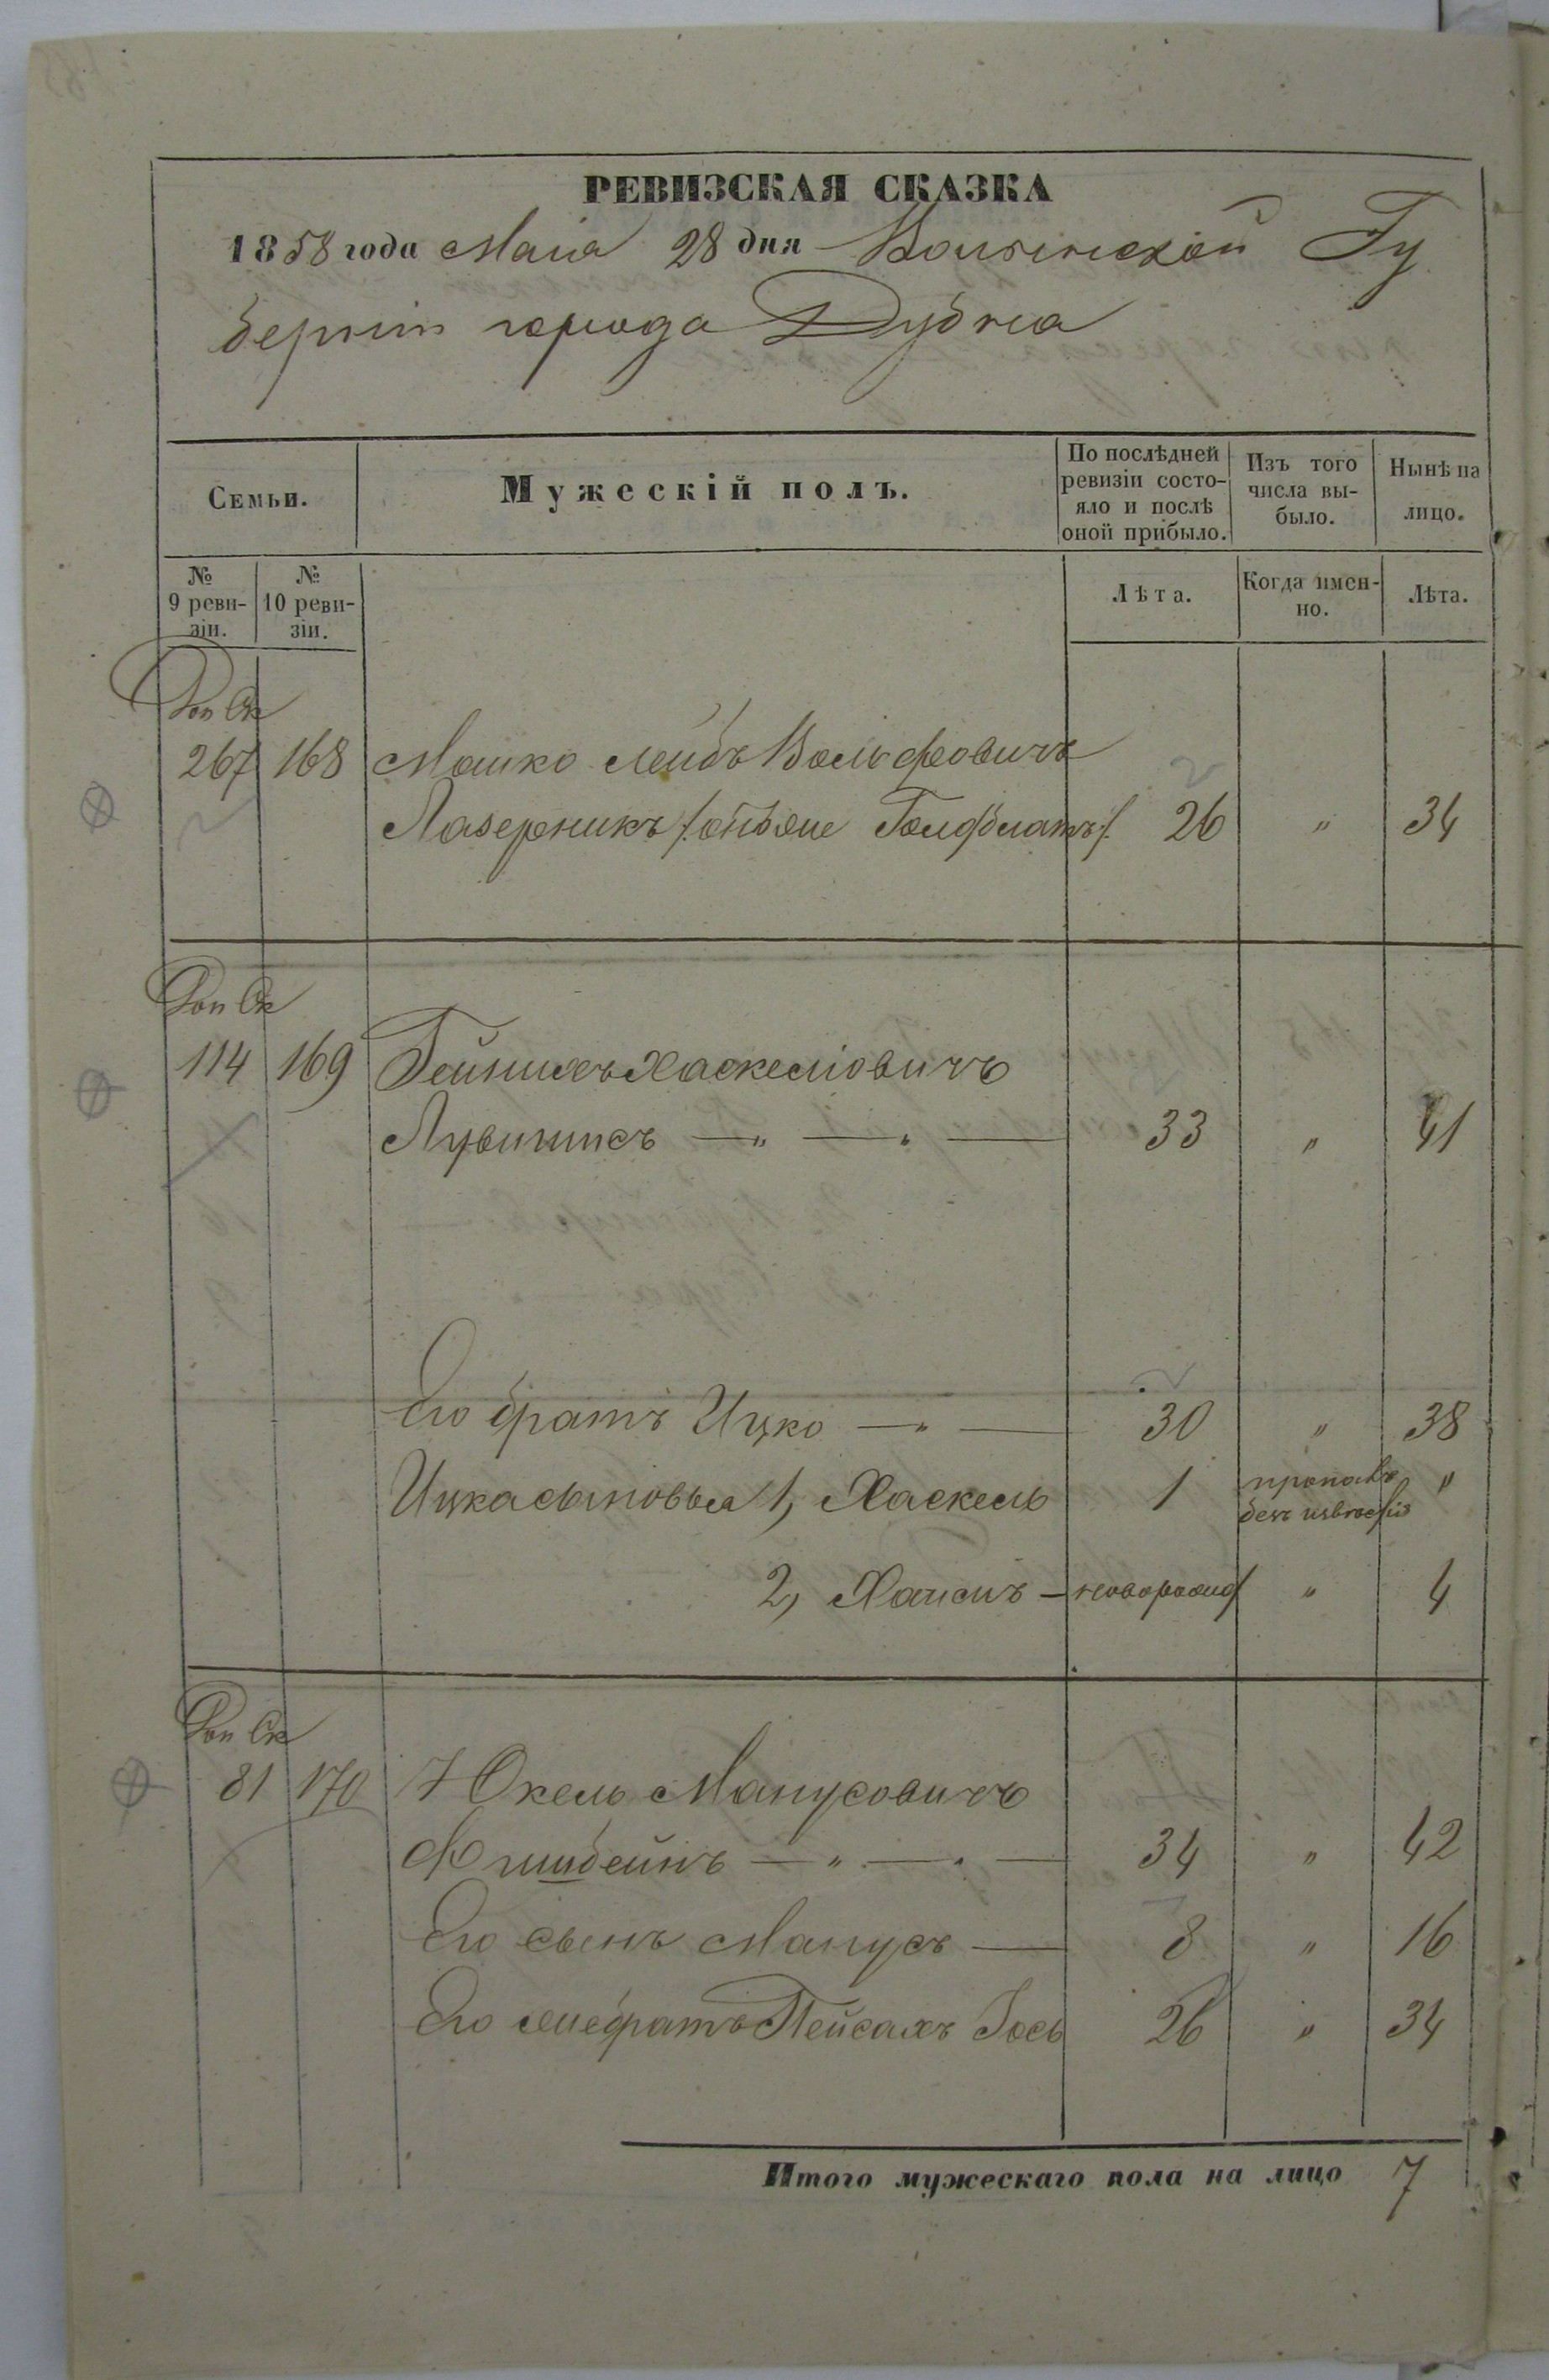 РЕВИЗСКАЯ СКАЗКА
1858 года Маія 28 дня Волынской Гу
берніи города Дубна
Семьи.
Мужескій полъ.
По послѣдней ревизіи состо-
яло и послѣ оной прибыло.
Изъ того числа вы-
было.
Нынѣ на лицо.
№ 9 реви-
зіи.
№ 10 реви-
зіи.
Лѣта.
Когда имен-
но.
Лѣта.
Доп Ск
267 168 Мошко Лейбъ Вольфовичъ
Лазерникъ /: онъ же :/ 26 " 34
Доп Ск
114 169 Гейнихъ Хаскеліовичъ
33 " 41
Его братъ Ицко — " — 30 " 38
Ицка сыновья 1, Хаскель 1 пропалъ "
безъ
2, Хаимъ — новорожд " 4
Доп Ск
81 170 Юкель Манусовичъ
Фишбейнъ — " — " — 34 " 42
Его сынъ Манусъ — 8 " 16
Его братъ Пейсахъ Іось 26 " 34
Итого мужескаго пола на лицо 7